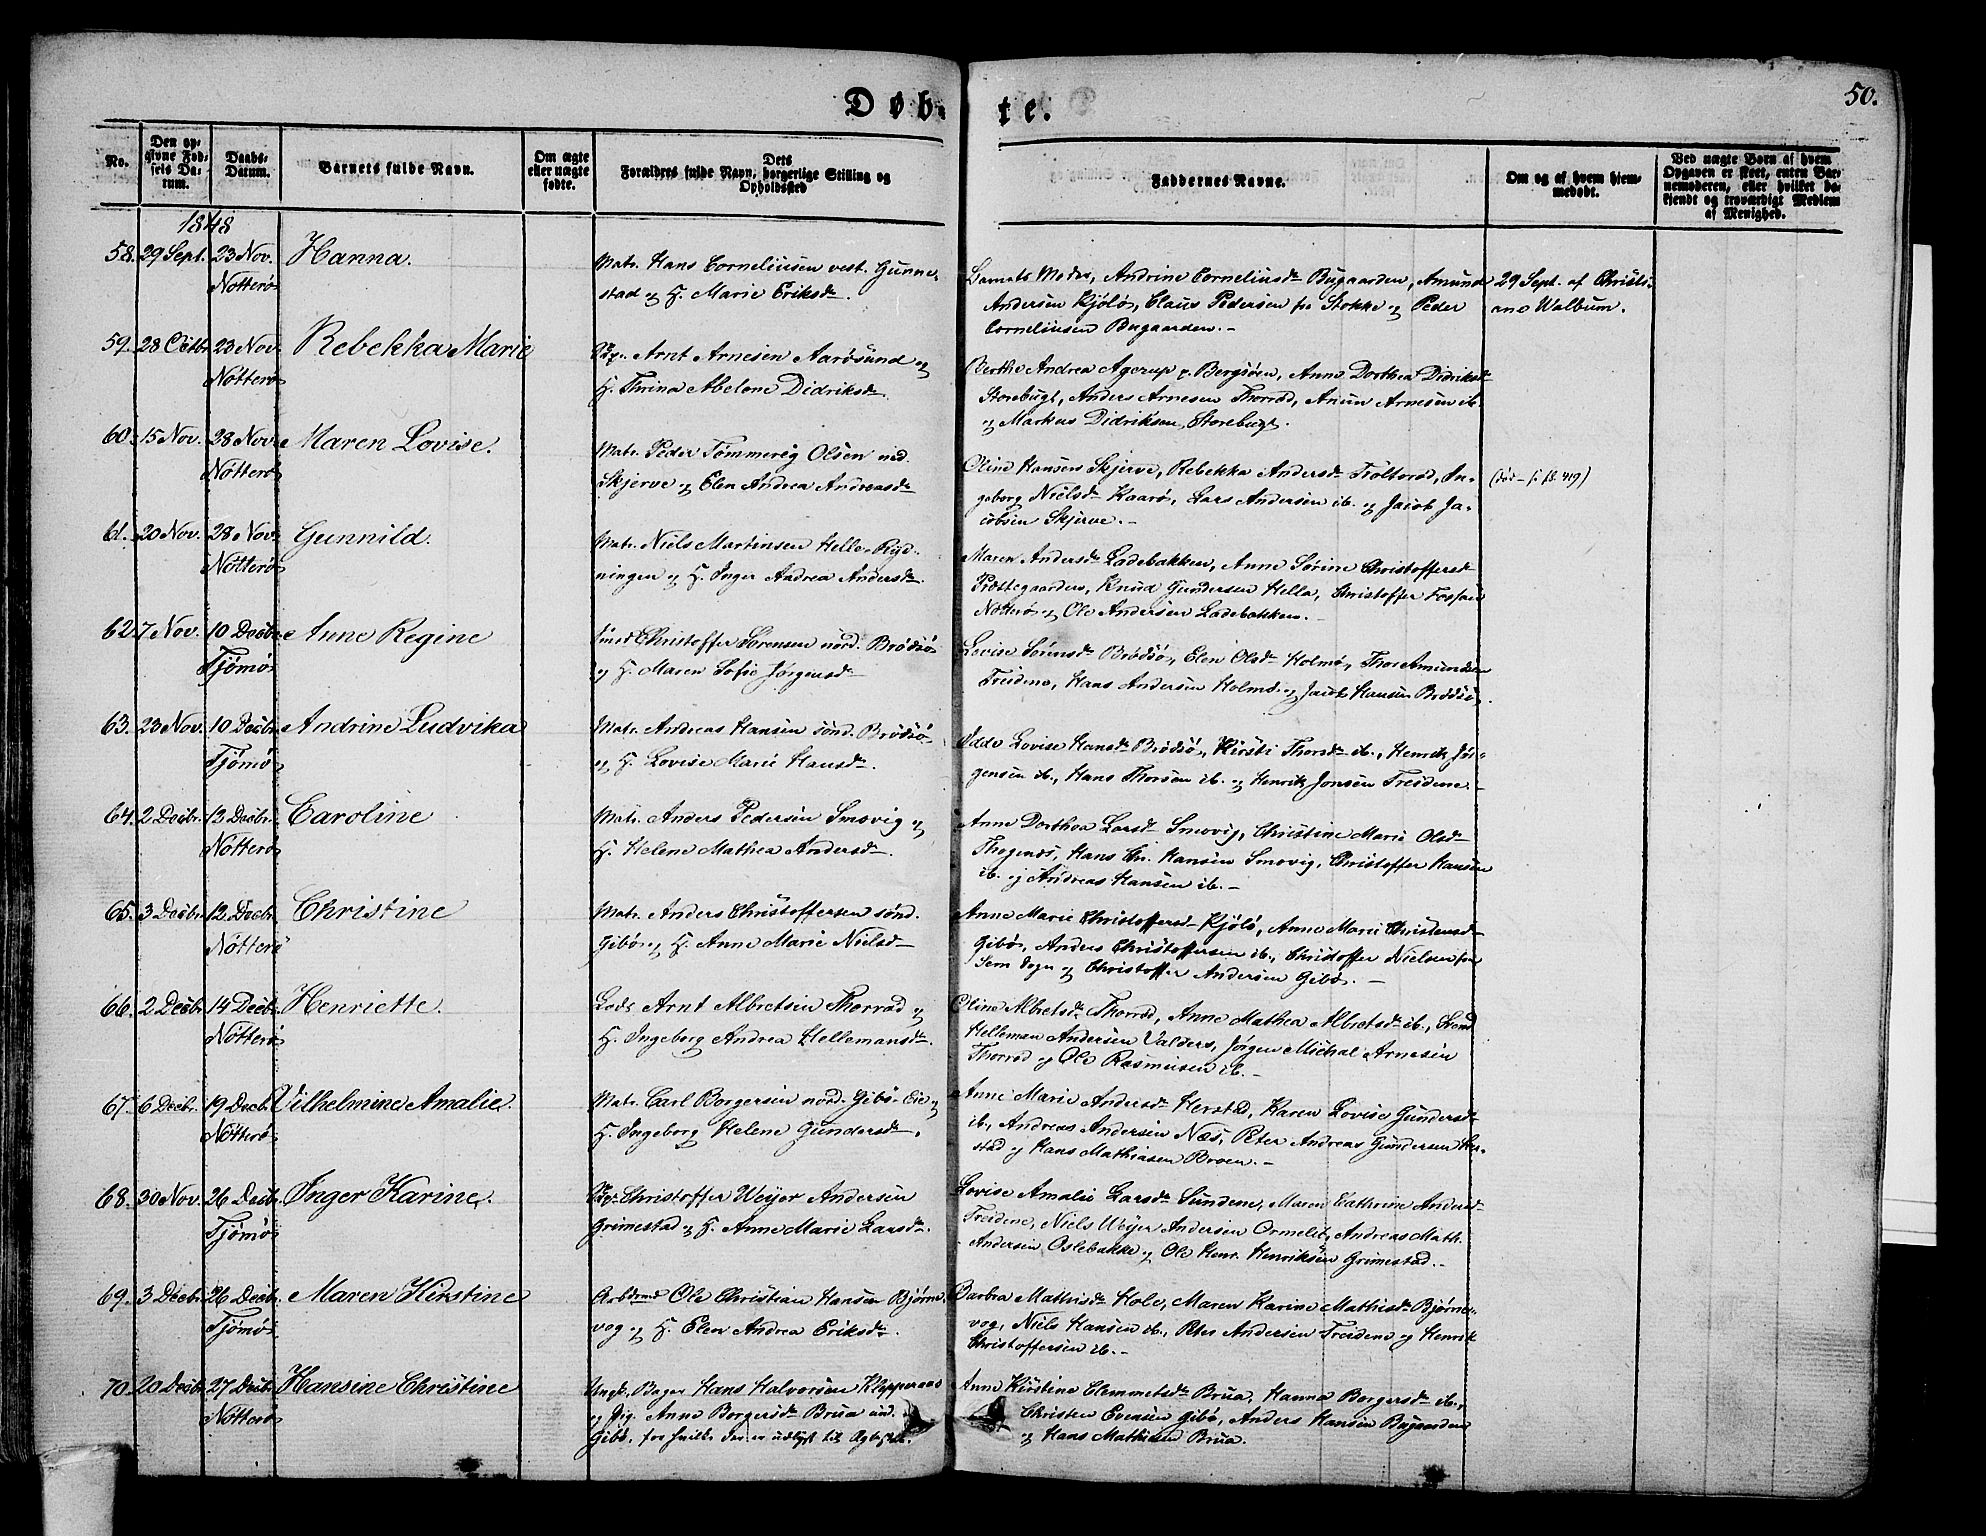 Døb-
te.
50.
No.
Den op-
givne Fød-
sels Da-
tum.
Daabs-
Datum.
Barnets fulde Navn.
Om ægte
eller uægte
fødte.
Forældres fulde Navn, Dets borgerlige Stilling og
Opholdssted
Faddernes Navne.
Om og af hvem hjem-
medøbt.
Ved uægte Børn af hvem
Opgaven er skeet, enten Bar-
nemoderen, eller hvilket be-
kjendt og troværdigt Medlem
af Menighed.
1848
58. 29 Sept. 23 Nov. Hanna.
Nøtterø
Matr. Hans Corneliusen vest. Gunne-
stad og H. Marie Eriksd.
Barnets Moder, Andrine Corneliusd Bugaarden, Amund
Andersen Kjølø, Claus Pedersen fra Stokke og Peder
Corneliusen Bugaarden.-
29 Sept. af Christi-
ane Walbum.
59. 28 Octb. 23 Nov. Rebekka Marie
Nøtterø
Arnt Arnesen Aarøsund og
H. Thrina Abelone Didriksd.
Berthe Andrea Agerup p. Bergsøen, Anne Dorthea Didriksd
Storebugt, Anders Arnesen Thorrød, Anun Arnesen ib.
og Markus Didriksen, Storebugt.
60. 15 Nov. 28 Nov. Maren Lovise.
Nøtterø
Matr. Peder Tømmerøg Olsen ned.
Skjerve og Elen Andrea Andreasd
Oline Hansen Skjerve, Rebekka Andersd Trolterød, In-
geborg Nielsd Kaarø, Lars Andersen ib. og Jacob Ja-
cobsen Skjerve.-
61. 20 Nov. 28 Nov. Gunnild.
Nøtterø
Matr. Niels Martinsen Hella-Ryd-
ningen og H. Inger Andrea Andersd.
Maren Andersd Ladebakken, Anne Sørine Christoffersd
Prestegaarden, Knud Gundersen Hella, Christoffer Fossan
Nøtterø og Ole Andersen Ladebakken.-
62. 7 Nov. 10 Decbr. Anne Regine
Tjømø
Christoffer Sørensen nord. Brødsø
og H. Maren Sofie Jørgensd
Lovise Sørensd Brødsø, Elen Olsd Holmø, Thor Amundsen
Treidene, Hans Andersen Holmø og Jacob Hansen Brødsø.
63. 23 Nov. 10 Decbr. Andrine Ludvika
Tjømø
Matr. Andreas Hansen sønd. Brødsø
og H. Lovise Marie Hansd.
Lovise Hansd Brødsø, Kirsti Thorsd ib., Henrik Jør-
gensen ib., Hans Thorsen ib. og Henrik Jonsen Treidene.-
64. 2 Decbr. 12 Decbr. Caroline
Nøtterø
Matr. Anders Pedersen Smovig og
H. Helene Mathea Andersd.
Anne Dorthea Larsd Smovig, Christine Marie Olsd
Thogenæs, Hans Chr. Hansen Smovig, Christoffer Hansen
ib. og Andreas Hansen ib.-
65. 3 Decbr. 12 Decbr. Christine
Nøtterø
Matr. Anders Christoffersen sønd.
Gibø og H. Anne Marie Nielsd
Anne Marie Christoffersd Kjølø, Anne Marie Christensd
Gibø, Anders Christoffersen ib., Christoffer Nielsen fra
Sem Sogn og Christoffer Andersen Gibø.-
66. 2 Decbr. 14 Decbr. Henriette.
Nøtterø
Lods Arnt Albretsen Thorrød og
H. Ingeborg Andrea Hellemansd.
Oline Albretsd Thorrød, Anne Mathea Albretsd ib.,
Helleman Andersen Valders, Jørgen Michal Arnesen
Thorrød og Ole Rasmusen ib.-
67. 6 Decbr. 19 Decbr. Vilhelmine Amalie.
Nøtterø
Matr. Carl Borgersen nord. Gibø-Eie og
H. Ingeborg Helene Gundersd.
Anne Marie Andersd Herstad, Karen Lovise Gundersd
ib., Andreas Andersen Næs, Peter Andreas Gundersen Her-
stad og Hans Mathiasen Broen.-
68. 30 Nov. 26 Decbr. Inger Karine.
Tjømø
Christoffer Weyer Andersen
Grimestad og H. Anne Marie Larsd.
Lovise Amalie Larsd Sundene, Maren Cathrine Andersd
Treidene, Niels Weyer Andersen Ormelit, Andreas Math.
Andersen Oslebakke og Ole Henr. Henriksen Grimestad.-
69. 3 Decbr. 26 Decbr. Maren Kirstine
Tjømø
Arbdsmd Ole Christian Hansen Bjørne-
vog og H. Elen Andrea Eriksd.
Barbra Mathisd Hole, Maren Karine Mathisd Bjørne-
vog, Niels Hansen ib., Peter Andersen Treidene og Henrik
Christoffersen ib.-
70. 20 Decbr. 27 Decbr. Hansine Christine
Nøtterø
Ungk. Bager Hans Halvorsen Kleppeaas
og Pig. Anne Borgersd Brua und.
Gibø, for hvilke der er udlyst til Ægteskab.
Anne Kirstine Clemmetsd Brua, Hanna Borgersd ib.,
Christen Evensen Gibø, Anders Hansen Bugaarden
og Hans Mathisen Brua.